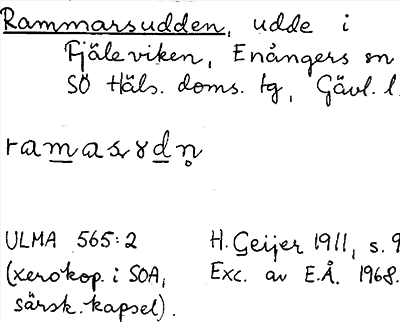 Rammarsudden, udde i
Fjäleviken, Enångers sn
SÖ Häls. doms. tg, Gävl. l.
ULMA 565:2
(xerokop. i SOA,
särsk. kapsel).
H. Geijer 1911, s. 9
Exc. av E.Å. 1968.